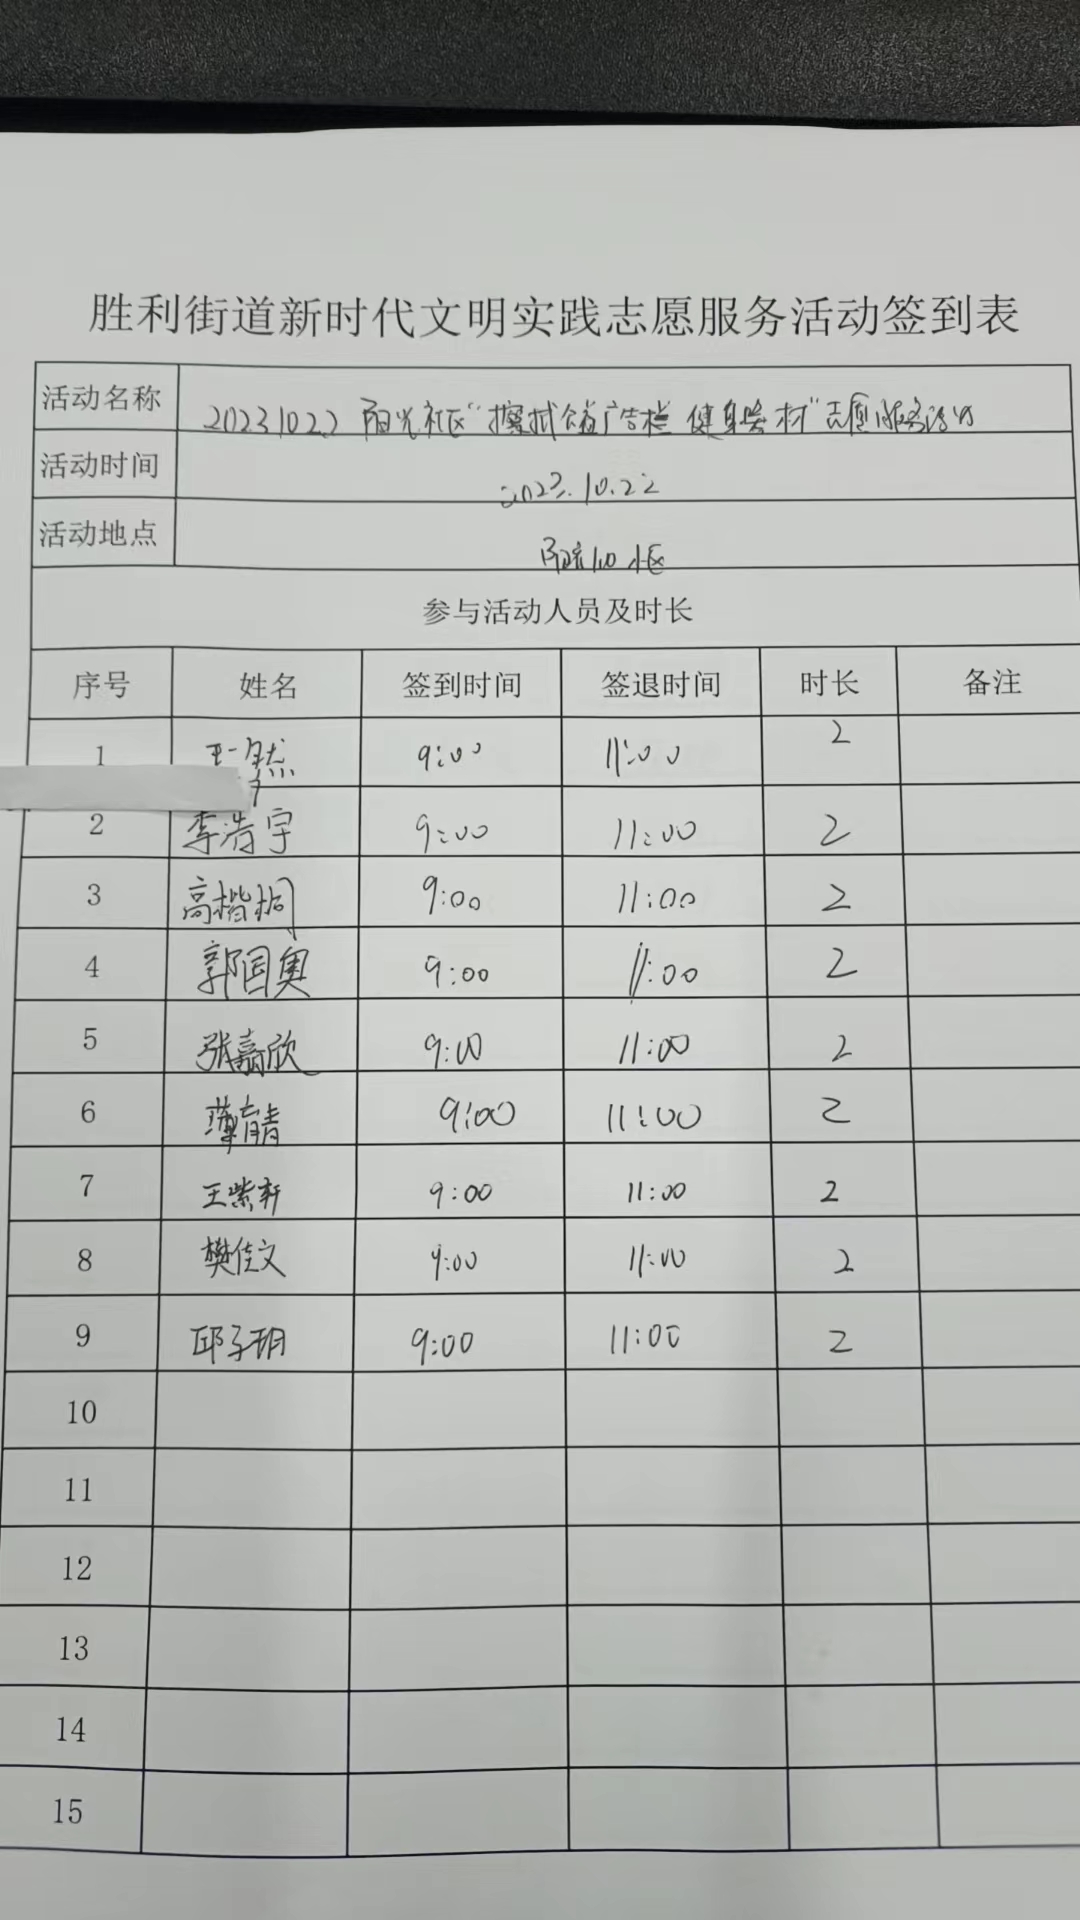 胜利街道新时代文明实践志愿服务活动签到表
活动名称 20231022 阳光社区"擦拭公益广告栏 健身器材"志愿服务活动
活动时间 2023.10.22
活动地点 小区
参与活动人员及时长
序号 姓名 签到时间 签退时间 时长 备注
1 9:00 11:00 2
2 李浩宇 9:00 11:00 2
3 高楷桐 9:00 11:00 2
4 郭国奥 9:00 11:00 2
5 张嘉欣 9:00 11:00 2
6 薄育青 9:00 11:00 2
7 王紫轩 9:00 11:00 2
8 樊佳文 9:00 11:00 2
9 邱子玥 9:00 11:00 2
10
11
12
13
14
15